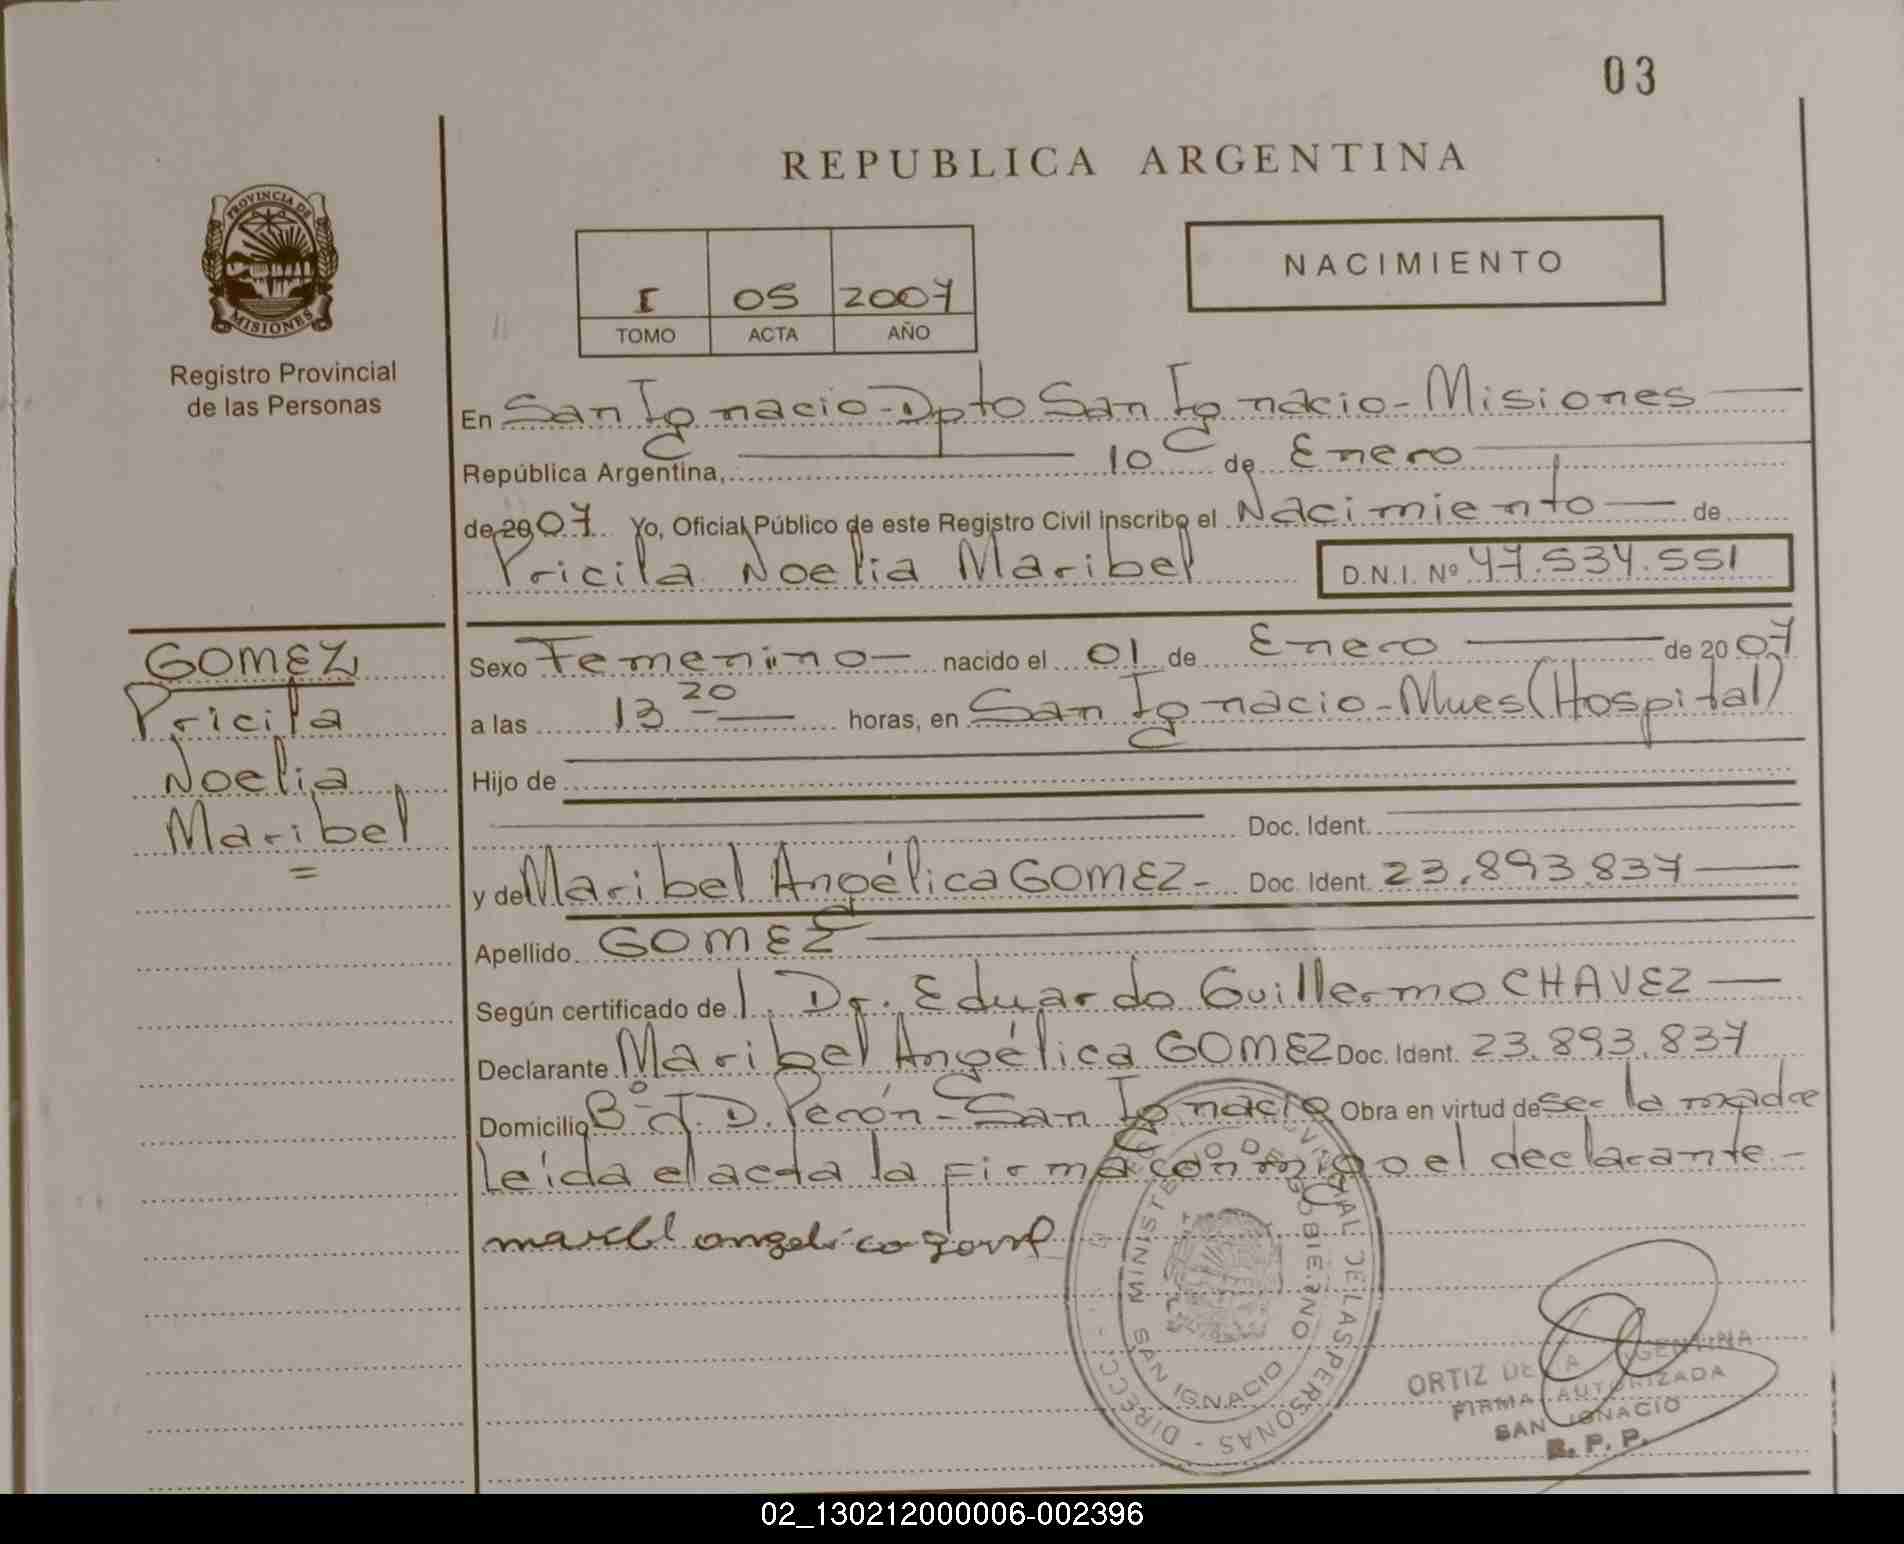 03
REPUBLICA ARGENTINA
PROVINCIA DE
MISIONES
Registro Provincial
de las Personas
I 05 2007
TOMO ACTA AÑO
NACIMIENTO
En San Ignacio - Dpto San Ignacio - Misiones
República Argentina, 10 de Enero
de 2007 Yo, Oficial Público de este Registro Civil inscribo el Nacimiento de
Pricila Noelia Maribel D.N.I. Nº 47.534.551
GOMEZ
Pricila
Noelia
Maribel
Sexo Femenino nacido el 01 de Enero de 2007
a las 13 20 horas, en San Ignacio - Mnes (Hospital)
Hijo de
Doc. Ident.
y de Maribel Angélica GOMEZ - Doc. Ident. 23.893.837
Apellido GOMEZ
Según certificado de Dr. Eduardo Guillermo CHAVEZ
Declarante Maribel Angélica GOMEZ Doc. Ident. 23.893.837
Domicilio Bº J. D. Perón - San Ignacio Obra en virtud de ser la madre
Leída el acta la firma conmigo el declarante -
maribel angelica
MINISTERIO DE GOBIERNO
SAN IGNACIO
DE LAS PERSONAS
ORTIZ DE ARGENTINA
FIRMA AUTORIZADA
SAN IGNACIO
R. P. P.
02_130212000006-002396